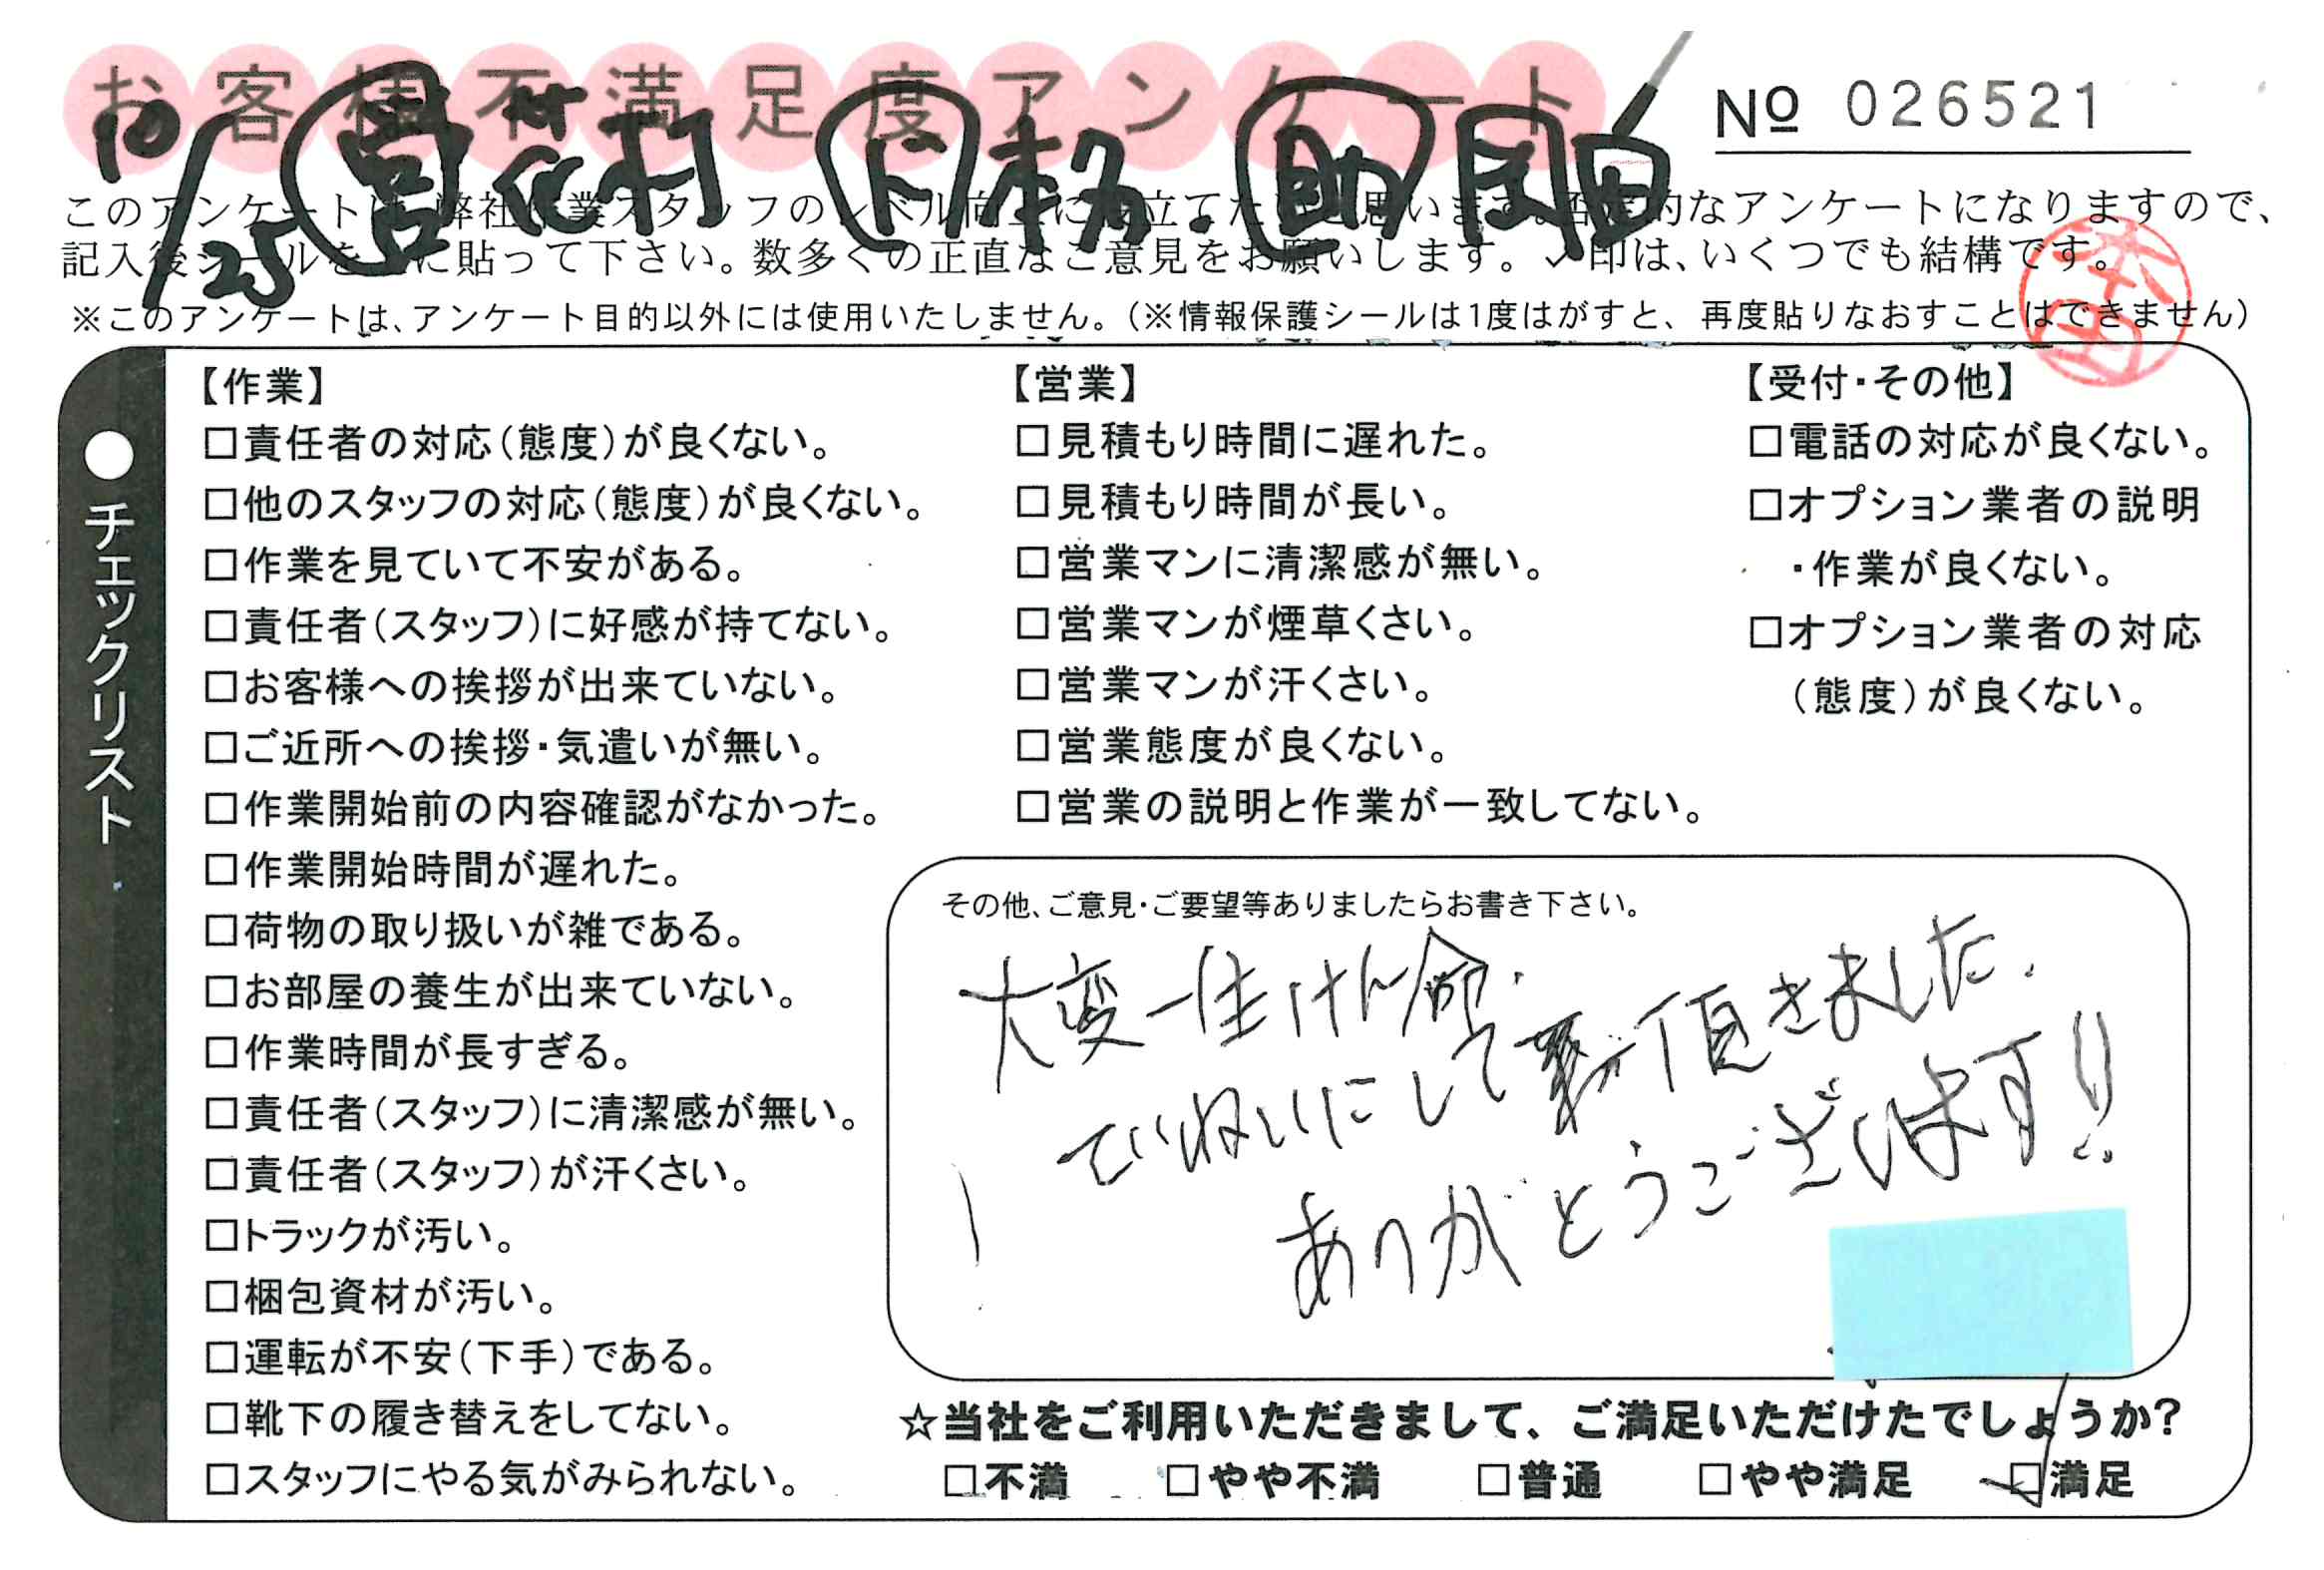 お客様不満足度アンケート
№ 026521
10/25 営 花村 ト 本杉 助 岡田
このアンケートは、弊社作業スタッフのレベル向上に役立てたいと思います。否定的なアンケートになりますので、
記入後シールを上に貼って下さい。数多くの正直なご意見をお願いします。✓印は、いくつでも結構です。
※このアンケートは、アンケート目的以外には使用いたしません。（※情報保護シールは1度はがすと、再度貼りなおすことはできません）
●チェックリスト
【作業】
□責任者の対応（態度）が良くない。
□他のスタッフの対応（態度）が良くない。
□作業を見ていて不安がある。
□責任者（スタッフ）に好感が持てない。
□お客様への挨拶が出来ていない。
□ご近所への挨拶・気遣いが無い。
□作業開始前の内容確認がなかった。
□作業開始時間が遅れた。
□荷物の取り扱いが雑である。
□お部屋の養生が出来ていない。
□作業時間が長すぎる。
□責任者（スタッフ）に清潔感が無い。
□責任者（スタッフ）が汗くさい。
□トラックが汚い。
□梱包資材が汚い。
□運転が不安（下手）である。
□靴下の履き替えをしてない。
□スタッフにやる気がみられない。
【営業】
□見積もり時間に遅れた。
□見積もり時間が長い。
□営業マンに清潔感が無い。
□営業マンが煙草くさい。
□営業マンが汗くさい。
□営業態度が良くない。
□営業の説明と作業が一致してない。
【受付・その他】
□電話の対応が良くない。
□オプション業者の説明
・作業が良くない。
□オプション業者の対応
（態度）が良くない。
その他、ご意見・ご要望等ありましたらお書き下さい。
大変一生けん命
ていねいにして頂きました。
ありがとうございます!!
☆当社をご利用いただきまして、ご満足いただけたでしょうか？
□不満 □やや不満 □普通 □やや満足 ☑満足